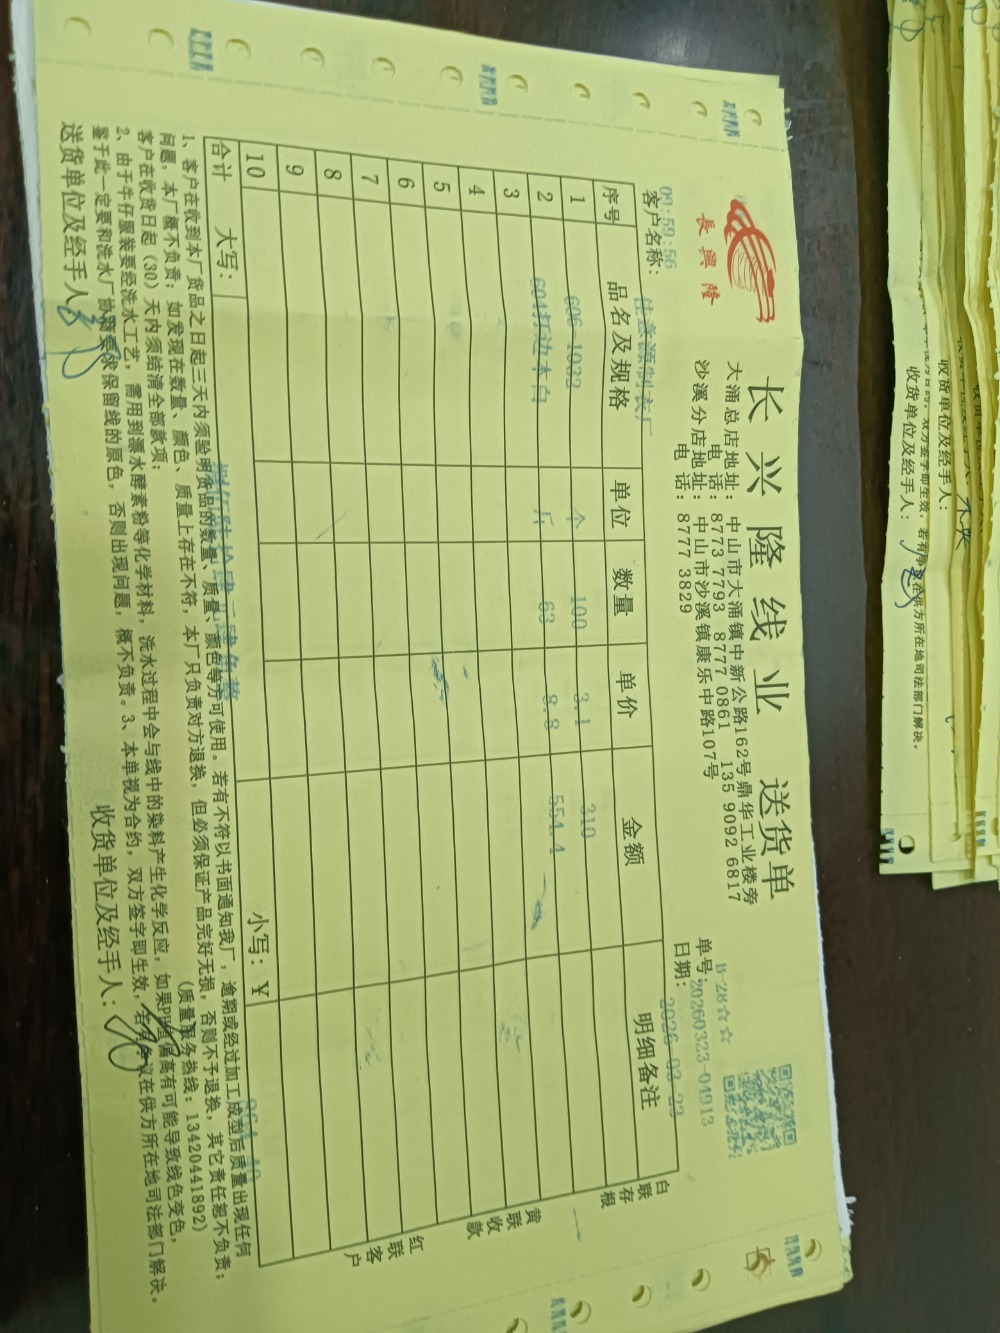 長興隆
长兴隆线业 送货单
大涌总店地址：中山市大涌镇中新公路162号鼎华工业楼旁
电 话：8773 7793 8777 0861 135 9092 6817
沙溪分店地址：中山市沙溪镇康乐中路107号
电 话：8777 3829
B-28☆☆
单号：20260323-04913
日期：2026-03-23
09:59:56
客户名称：佳意源制衣厂
序号 品名及规格 单位 数量 单价 金额 明细备注
1 606-1032 个 100 3.1 310
2 604打边本白 斤 63 8.8 554.4
3
4
5
6
7
8
9
10
合计 大写： 捌佰陆拾肆元肆角整 小写：￥ 864.40
白联存根
黄联收款
红联客户
1、客户在收到本厂货品之日起三天内须验明货品的数量、质量、颜色等方可使用。若有不符以书面通知我厂，逾期或经过加工成型后质量出现任何
问题，本厂概不负责；如发现在数量、颜色、质量上存在不符，本厂只负责对方退换，但必须保证产品完好无损，否则不予退换，其它责任恕不负责；
客户在收货日起（30）天内须结清全部款项； （质量服务热线：13420441892）
2、由于牛仔服装要经洗水工艺，需用到漂水酵素粉等化学材料，洗水过程中会与线中的染料产生化学反应，如果PH值偏高有可能导致线色变色，
鉴于此一定要和洗水厂协商要求保留线的原色，否则出现问题，概不负责。3、本单视为合约，双方签字即生效，若有争议在供方所在地司法部门解决。
送货单位及经手人：
收货单位及经手人：
收货单位及经手人：
收货单位及经手人：
双方签字即生效，若有争议在供方所在地司法部门解决。